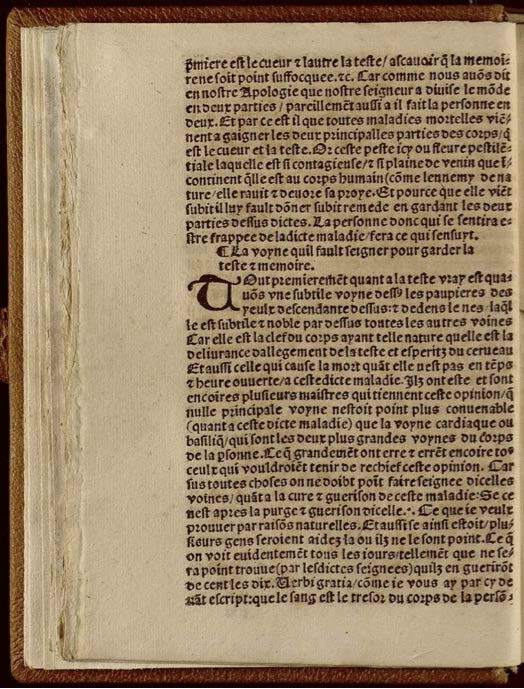 p̄miere est le cueur ⁊ lautre la teste/ ascauoir q̄ la memoi-
re ne soit point suffocquee.⁊c. Car comme nous auõs dit
en nostre Apologie que nostre seigneur a diuise le mõde
en deux parties/ pareillemēt aussi a il fait la personne en
deux. Et par ce est il que toute maladies mortelles viē-
nent a gaigner les deux principalles parties des corps/ q̄
est le cueur et la teste. Or ceste peste icy ou fieure pestilē-
tiale laquelle est si contagieuse/ ⁊ si plaine de venin que ī-
continent q̄lle est au corps humain (cõme lennemy de na
ture/ elle rauit ⁊ deuore sa proye. Et pource que elle viēt
subit il luy fault dõner subit remede en gardant les deux
parties dessus dictes. La personne donc qui se sentira e-
stre frappee de ladicte maladie/ fera ce qui sensuyt.
¶ La voyne quil fault seigner pour garder la
teste ⁊ memoire.
TOut premieremēt quant a la teste vray est qua-
uõs vne subtile voyne dessꝰ les paupieres des
yeulx descendante dessus: ⁊ dedens le nes/ laq̄l
le est subtile ⁊ noble par dessus toutes les autres voines
Car elle est la clef du corps ayant telle nature quelle est la
deliurance dallegement de la teste et esperitz du cerueau
Et aussi celle qui cause la mort quãt elle nest pas en tēps
⁊ heure ouuerte/ a ceste dicte maladie. Jlz ont este et sont
encoires plusieurs maistres qui tiennent ceste opinion/ q̄
nulle principale voyne nestoit point plus conuenable
(quant a ceste dicte maladie) que la voyne cardiaque ou
basiliq̄/ qui sont les deux plus grandes voynes du corps
de la ꝑsonne. Ce q̄ grandemēt ont erre ⁊ errēt encoire toꝰ
ceulx qui vouldroiēt tenir de rechief ceste opinion. Car
sus toutes choses on ne doibt poīt faire seignee dicelles
voines/ quãt a la cure ⁊ guerison de ceste maladie: Se ce
nest apres la purge ⁊ guerison dicelle.·. Ce que ie veulx
prouuer par raisõs naturelles. Et aussi se ainsi estoit/ plu-
sieurs gens seroient aidez la ou ilz ne le sont point. Ce q̄
on voit euidentemēt tous les iours/ tellemēt que ne se-
ra point trouue (par lesdictes seignees) quilz en guerirõt
de cent les dix. Verbi gratia/ cõme ie vous ay par cy de
uãt escript: que le sang est le tresor du corps de la persõ-